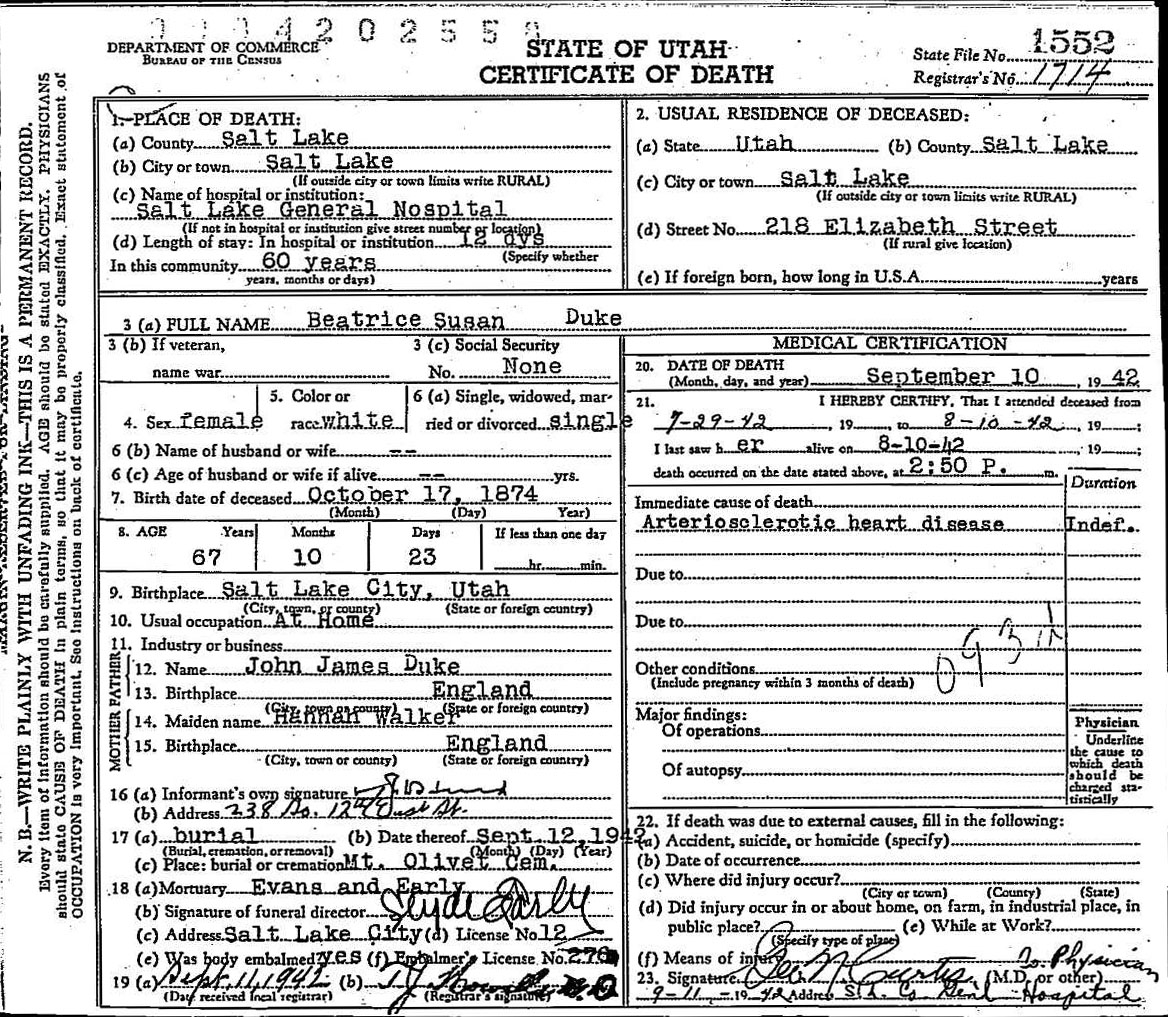 DEPARTMENT OF COMMERCE
BUREAU OF THE CENSUS
STATE OF UTAH
CERTIFICATE OF DEATH
State File No. 1552
Registrar's No. 1714
N. B.—WRITE PLAINLY WITH UNFADING INK—THIS IS A PERMANENT RECORD.
Every item of information should be carefully supplied. AGE should be stated EXACTLY. PHYSICIANS
should state CAUSE OF DEATH in plain terms, so that it may be properly classified. Exact statement of
OCCUPATION is very important. See instructions on back of certificate.
1. PLACE OF DEATH:
(a) County Salt Lake
(b) City or town Salt Lake
(If outside city or town limits write RURAL)
(c) Name of hospital or institution:
Salt Lake General Nospital
(If not in hospital or institution give street number or location)
(d) Length of stay: In hospital or institution 12 dys
(Specify whether
In this community 60 years
years, months or days)
2. USUAL RESIDENCE OF DECEASED:
(a) State Utah (b) County Salt Lake
(c) City or town Salt Lake
(If outside city or town limits write RURAL)
(d) Street No. 218 Elizabeth Street
(If rural give location)
(e) If foreign born, how long in U.S.A. years
3 (a) FULL NAME Beatrice Susan Duke
3 (b) If veteran,
name war
3 (c) Social Security
No. None
4. Sex female
5. Color or
race white
6 (a) Single, widowed, mar-
ried or divorced single
6 (b) Name of husband or wife --
6 (c) Age of husband or wife if alive -- yrs.
7. Birth date of deceased October 17, 1874
(Month) (Day) Year)
8. AGE Years Months Days If less than one day
67 10 23 hr. min.
9. Birthplace Salt Lake City, Utah
(City, town, or county) (State or foreign country)
10. Usual occupation At Home
11. Industry or business
FATHER
12. Name John James Duke
13. Birthplace England
(City, town or county) (State or foreign country)
MOTHER
14. Maiden name Hannah Walker
15. Birthplace England
(City, town or county) (State or foreign country)
16 (a) Informant's own signature
(b) Address 238 So. 12th East St.
17 (a) burial (b) Date thereof Sept. 12, 1942
(Burial, cremation, or removal) (Month) (Day) (Year)
(c) Place: burial or cremation Mt. Olivet Cem.
18 (a) Mortuary Evans and Early
(b) Signature of funeral director Clyde Early
(c) Address Salt Lake City (d) License No. 12
(e) Was body embalmed? yes (f) Embalmer's License No. 276
19 (a) Sept. 11, 1942 (b) T J
(Date received local registrar) (Registrar's signature)
MEDICAL CERTIFICATION
20. DATE OF DEATH
(Month, day, and year) September 10, 1942
21. I HEREBY CERTIFY, That I attended deceased from
7-29-42, 19 , to 8-10-42, 19 ;
I last saw her alive on 8-10-42, 19 ;
death occurred on the date stated above, at 2:50 P. m.
Duration
Immediate cause of death
Arteriosclerotic heart disease Indef.
Due to
Due to
Other conditions
(Include pregnancy within 3 months of death)
Major findings:
Of operations
Of autopsy
Physician
Underline
the cause to
which death
should be
charged sta-
tistically
22. If death was due to external causes, fill in the following:
(a) Accident, suicide, or homicide (specify)
(b) Date of occurrence
(c) Where did injury occur?
(City or town) (County) (State)
(d) Did injury occur in or about home, on farm, in industrial place, in
public place? (e) While at Work?
(Specify type of place)
(f) Means of injury
23. Signature Geo N Curtis Co. Physician (M.D. or other)
9-11-1942 Address S. L. Co Genl Hospital